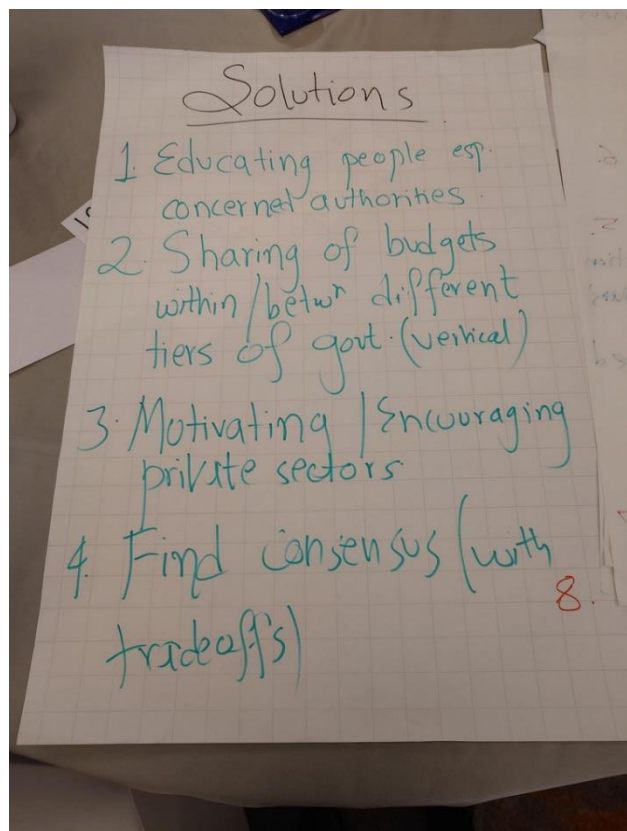 Solutions
1. Educating people esp.
concernet authorities.
2. Sharing of budgets
within/betwn different
tiers of govt. (vertical)
3. Motivating / Encouraging
private sectors
4. Find consensus (with
tradeoff's)
8.